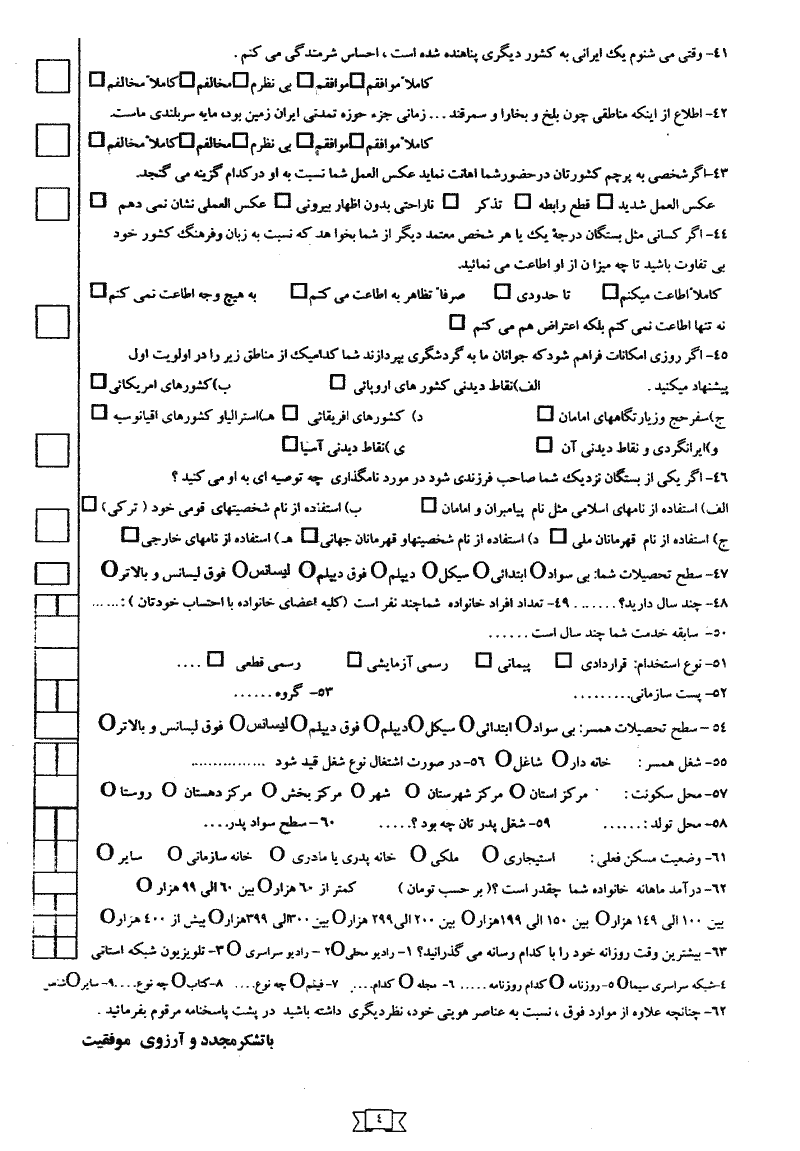 ۴۱- وقتی می شنوم یك ایرانی به كشور دیگری پناهنده شده است ، احساس شرمندگی می كنم .
كاملاً موافقم☐ موافقم☐ بی نظرم☐ مخالفم☐ كاملاً مخالفم☐
۴۲- اطلاع از اینكه مناطقی چون بلخ و بخارا و سمرقند ... زمانی جزء حوزه تمدنی ایران زمین بود، مایه سربلندی ماست.
كاملاً موافقم☐ موافقم☐ بی نظرم☐ مخالفم☐ كاملاً مخالفم☐
۴۳-اگرشخصی به پرچم كشورتان درحضورشما اهانت نماید عكس العمل شما نسبت به او دركدام گزینه می گنجد.
عكس العمل شدید ☐ قطع رابطه ☐ تذكر ☐ ناراحتی بدون اظهار بیرونی ☐ عكس العملی نشان نمی دهم ☐
۴۴- اگر كسانی مثل بستگان درجۀ یك یا هر شخص معتمد دیگر از شما بخوا هد كه نسبت به زبان وفرهنگ كشور خود
بی تفاوت باشید تا چه میزا ن از او اطاعت می نمائید.
كاملاً اطاعت میكنم☐ تا حدودی ☐ صرفاً تظاهر به اطاعت می كنم☐ به هیچ وجه اطاعت نمی كنم ☐
نه تنها اطاعت نمی كنم بلكه اعتراض هم می كنم ☐
۴۵- اگر روزی امكانات فراهم شودكه جوانان ما به گردشگری بپردازند شما كدامیك از مناطق زیر را در اولویت اول
پیشنهاد میكنید . الف)نقاط دیدنی كشور های اروپائی ☐ ب)كشورهای امریكائی ☐
ج)سفرحج وزیارتگاههای امامان ☐ د) كشورهای افریقائی ☐ هـ)استرالیاو كشورهای اقیانوسیه ☐
و)ایرانگردی و نقاط دیدنی آن ☐ ی )نقاط دیدنی آسیا☐
۴۶- اگر یكی از بستگان نزدیك شما صاحب فرزندی شود در مورد نامگذاری چه توصیه ای به او می كنید ؟
الف) استفاده از نامهای اسلامی مثل نام پیامبران و امامان ☐ ب) استفاده از نام شخصیتهای قومی خود ( تركی) ☐
ج) استفاده از نام قهرمانان ملی ☐ د) استفاده از نام شخصیتهاو قهرمانان جهانی☐ هـ) استفاده از نامهای خارجی☐
۴۷- سطح تحصیلات شما: بی سوادO ابتدائیO سیكلO دیپلمO فوق دیپلمO لیسانسO فوق لیسانس و بالاترO
۴۸- چند سال دارید؟....... ۴۹- تعداد افراد خانواده شماچند نفر است (كلیه اعضای خانواده با احتساب خودتان ) :......
۵۰- سابقه خدمت شما چند سال است ......
۵۱- نوع استخدام: قراردادی ☐ پیمانی ☐ رسمی آزمایشی ☐ رسمی قطعی ☐ ....
۵۲- پست سازمانی......... ۵۳- گروه......
۵۴ - سطح تحصیلات همسر: بی سوادO ابتدائیO سیكلOدیپلمO فوق دیپلمO لیسانسO فوق لیسانس و بالاترO
۵۵- شغل همسر : خانه دارO شاغلO ۵۶- در صورت اشتغال نوع شغل قید شود ...............
۵۷- محل سكونت : مركز استان O مركز شهرستان O شهر O مركز بخش O مركز دهستان O روستا O
۵۸- محل تولد :...... ۵۹- شغل پدر تان چه بود ؟..... ۶۰- سطح سواد پدر....
۶۱- وضعیت مسكن فعلی : استیجاری O ملكی O خانه پدری یا مادری O خانه سازمانی O سایر O
۶۲- درآمد ماهانه خانواده شما چقدر است ؟( بر حسب تومان ) كمتر از ۶۰ هزارO بین ۶۰ الی ۹۹ هزار O
بین ۱۰۰ الی ۱۴۹ هزارO بین ۱۵۰ الی ۱۹۹ هزارO بین ۲۰۰ الی ۲۹۹ هزارO بین ۳۰۰الی ۳۹۹هزارO بیش از ۴۰۰ هزارO
۶۳- بیشترین وقت روزانه خود را با كدام رسانه می گذرانید؟ ۱- رادیو محلیO ۲- رادیو سراسری O ۳- تلویزیون شبكه استانی
۴-شبكه سراسری سیماO ۵-روزنامه O كدام روزنامه ..... ۶- مجله O كدام.... ۷- فیلمO چه نوع.... ۸-كتابO چه نوع....۹- سایرO
۶۲- چنانچه علاوه از موارد فوق ، نسبت به عناصر هویتی خود، نظردیگری داشته باشید در پشت پاسخنامه مرقوم بفرمائید .
باتشكرمجدد و آرزوی موفقیت
۴